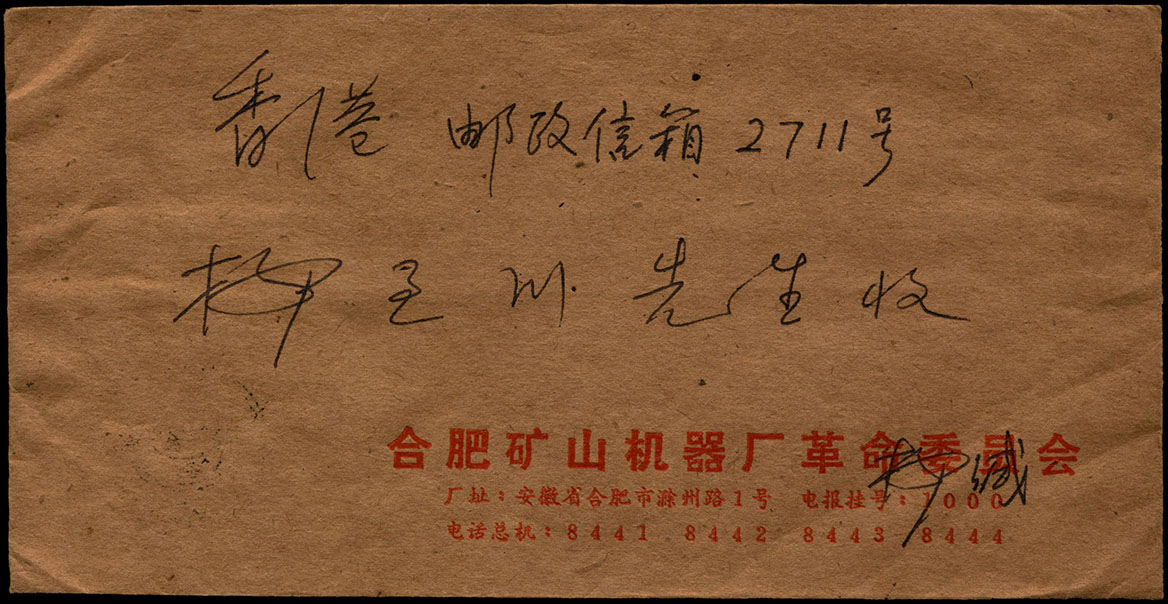 香港 邮政信箱 2711号
柳 川 先生 收
合肥矿山机器厂革命委员会
柳 缄
厂址：安徽省合肥市滁州路1号 电报挂号：1000
电话总机：8441 8442 8443 8444